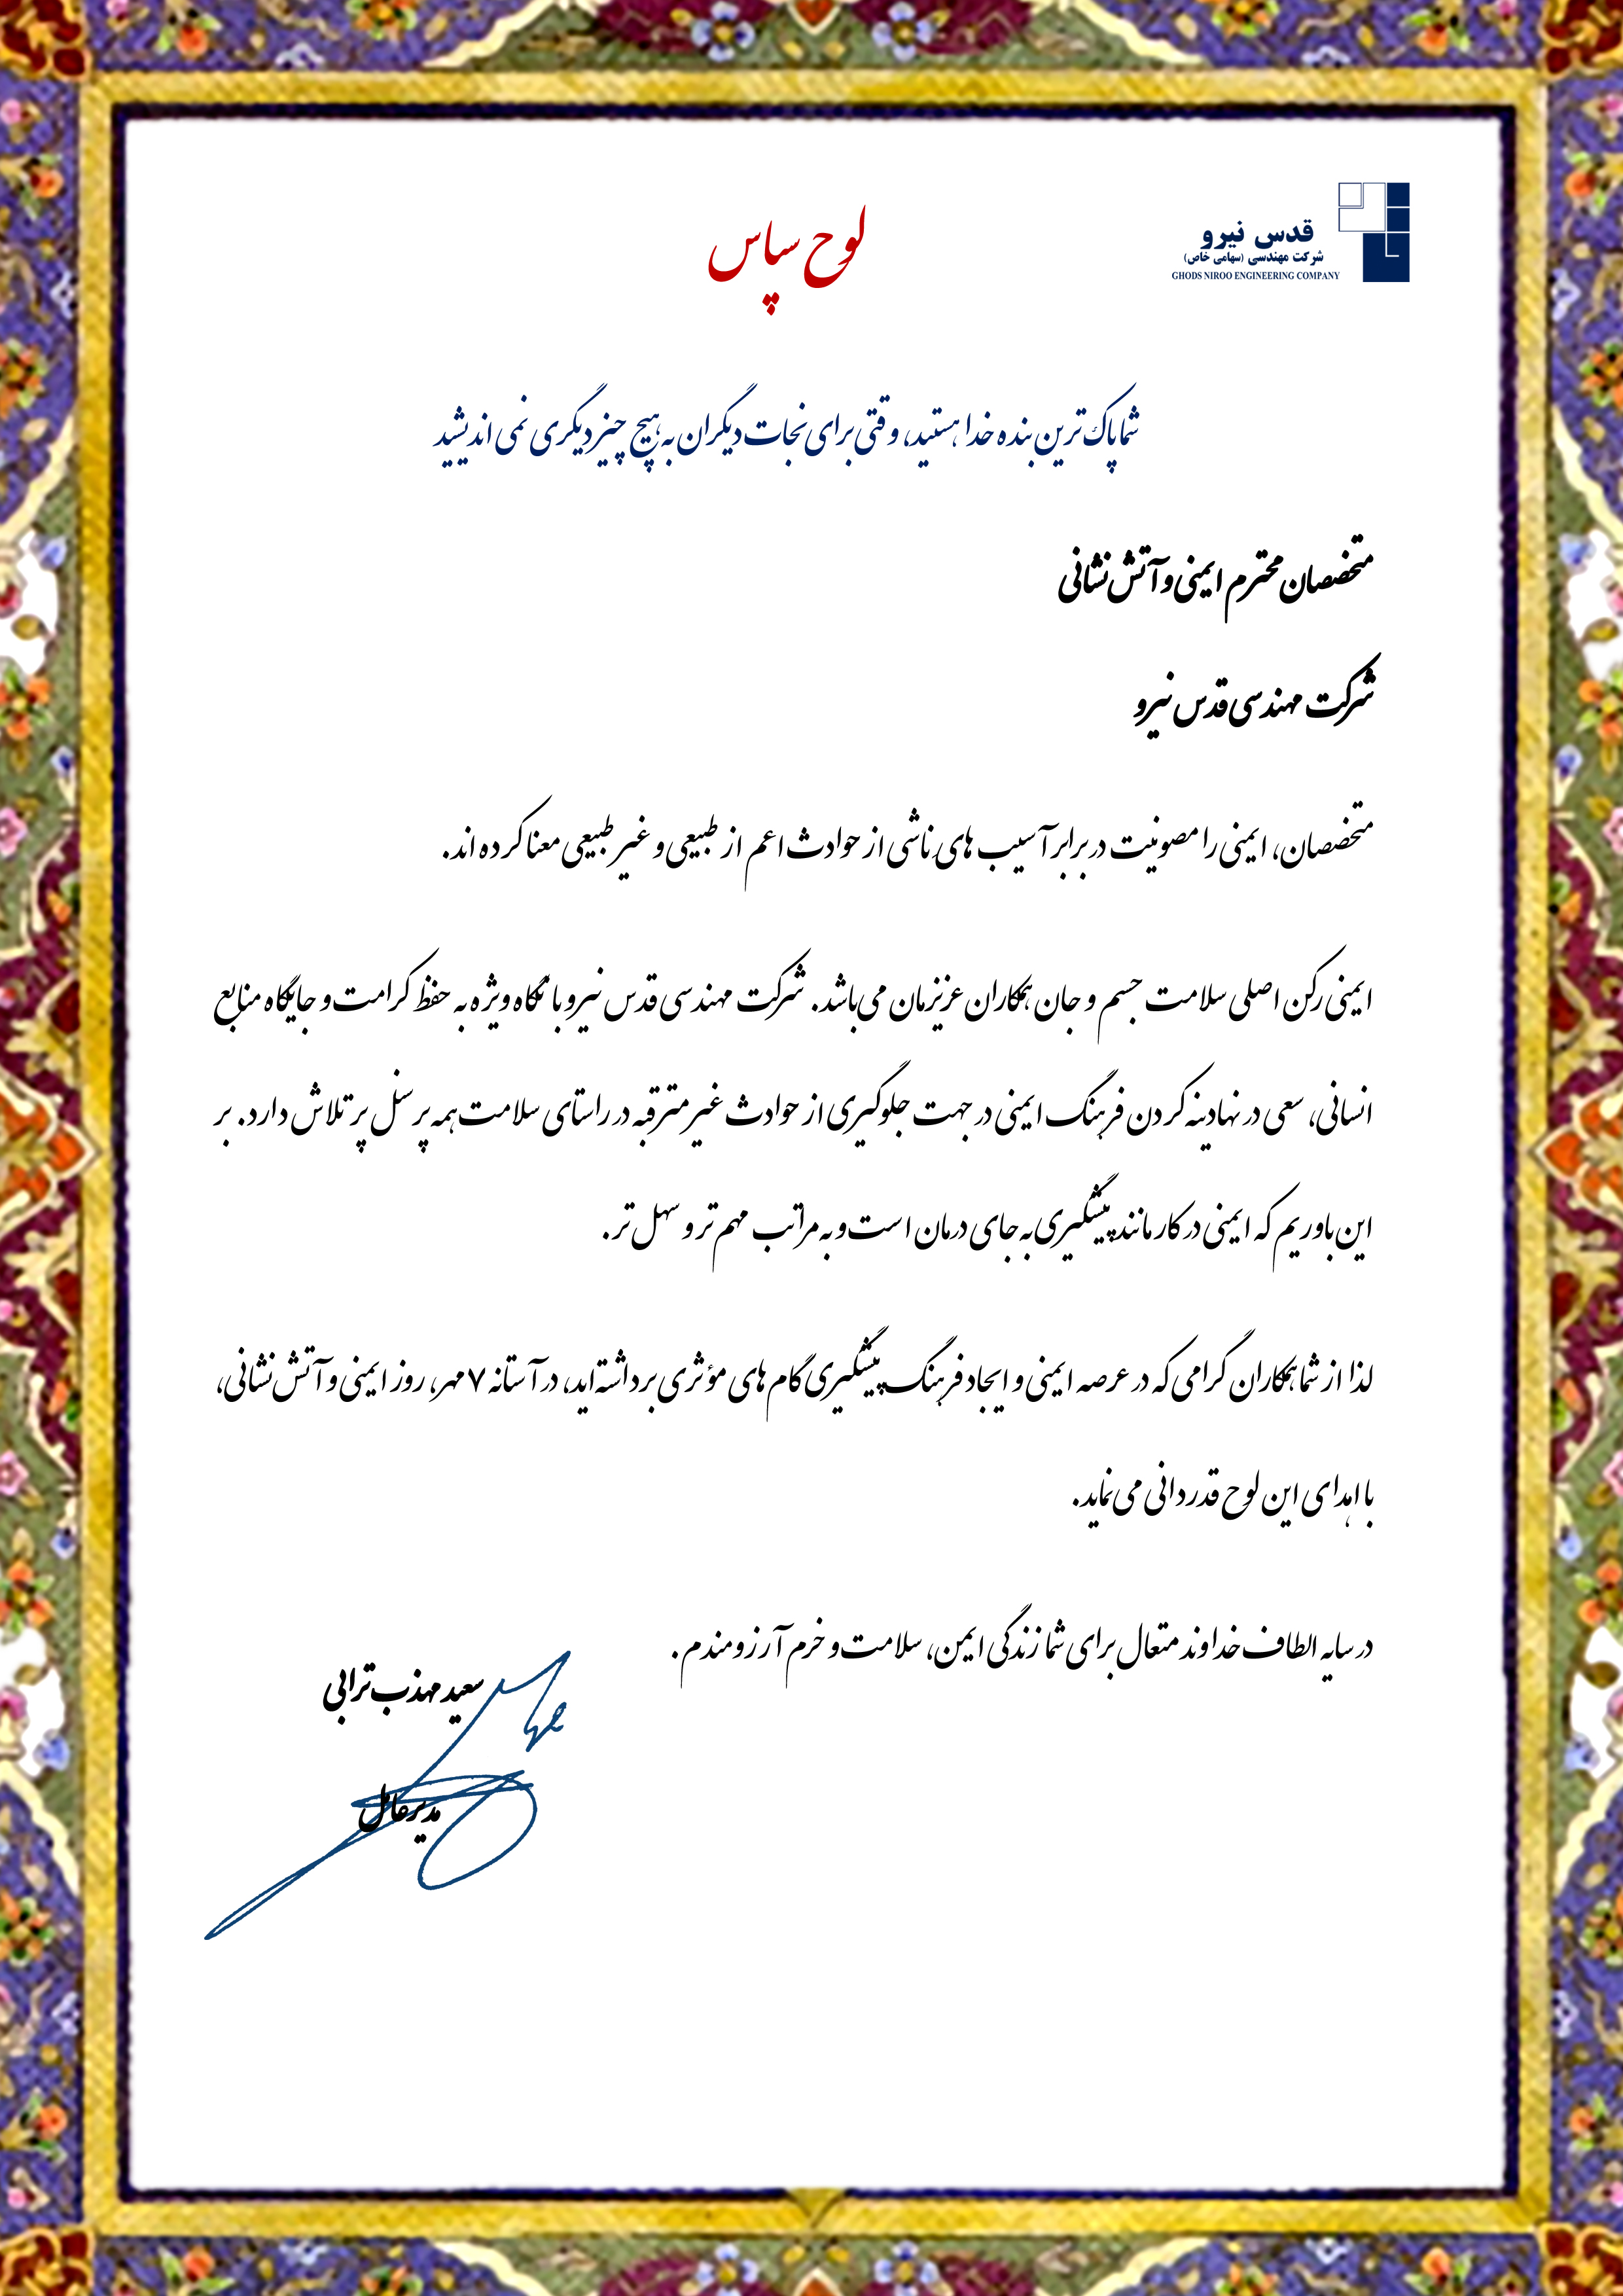 قدس نیرو
شرکت مهندسی (سهامی خاص)
GHODS NIROO ENGINEERING COMPANY
لوح سپاس
شما پاک ترین بنده خدا هستید، وقتی برای نجات دیگران به هیچ چیز دیگری نمی اندیشید
متخصصان محترم ایمنی و آتش نشانی
شرکت مهندسی قدس نیرو
متخصصان، ایمنی را مصونیت در برابر آسیب های ناشی از حوادث اعم از طبیعی و غیر طبیعی معنا کرده اند.
ایمنی رکن اصلی سلامت جسم و جان همکاران عزیزمان می باشد. شرکت مهندسی قدس نیرو با نگاه ویژه به حفظ کرامت و جایگاه منابع
انسانی، سعی در نهادینه کردن فرهنگ ایمنی در جهت جلوگیری از حوادث غیر مترقبه در راستای سلامت همه پرسنل پر تلاش دارد. بر
این باوریم که ایمنی در کار مانند پیشگیری به جای درمان است و به مراتب مهم تر و سهل تر.
لذا از شما همکاران گرامی که در عرصه ایمنی و ایجاد فرهنگ پیشگیری گام های مؤثری برداشته اید، در آستانه ۷ مهر، روز ایمنی و آتش نشانی،
با اهدای این لوح قدردانی می نماید.
در سایه الطاف خداوند متعال برای شما زندگی ایمن، سلامت و خرم آرزومندم.
سعید مهذب ترابی
مدیرعامل